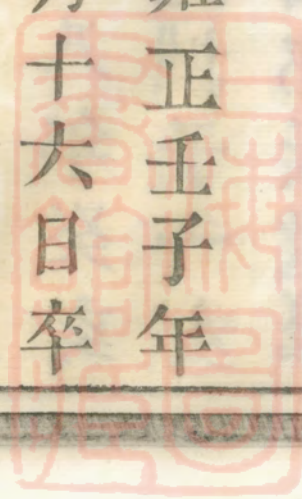 正壬子年
十六日卒